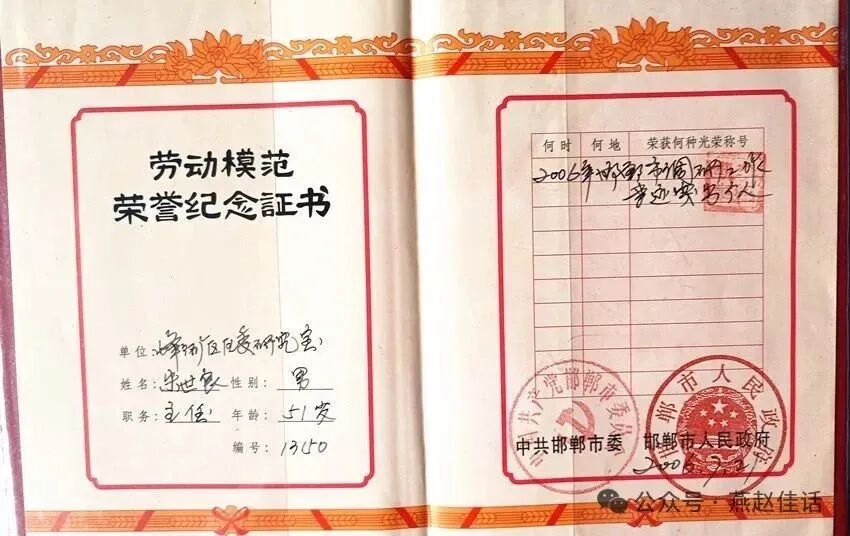 劳动模范
荣誉纪念証书
单位：峰峰矿区区委研究室
姓名：宋世良 性别：男
职务：主任 年龄：51岁
编号：1350
何时 何地 荣获何种光荣称号
2006年邯郸市调研工作
先进个人
中国共产党邯郸市委员会
邯郸市人民政府
中共邯郸市委 邯郸市人民政府
2006.
公众号·燕赵佳话